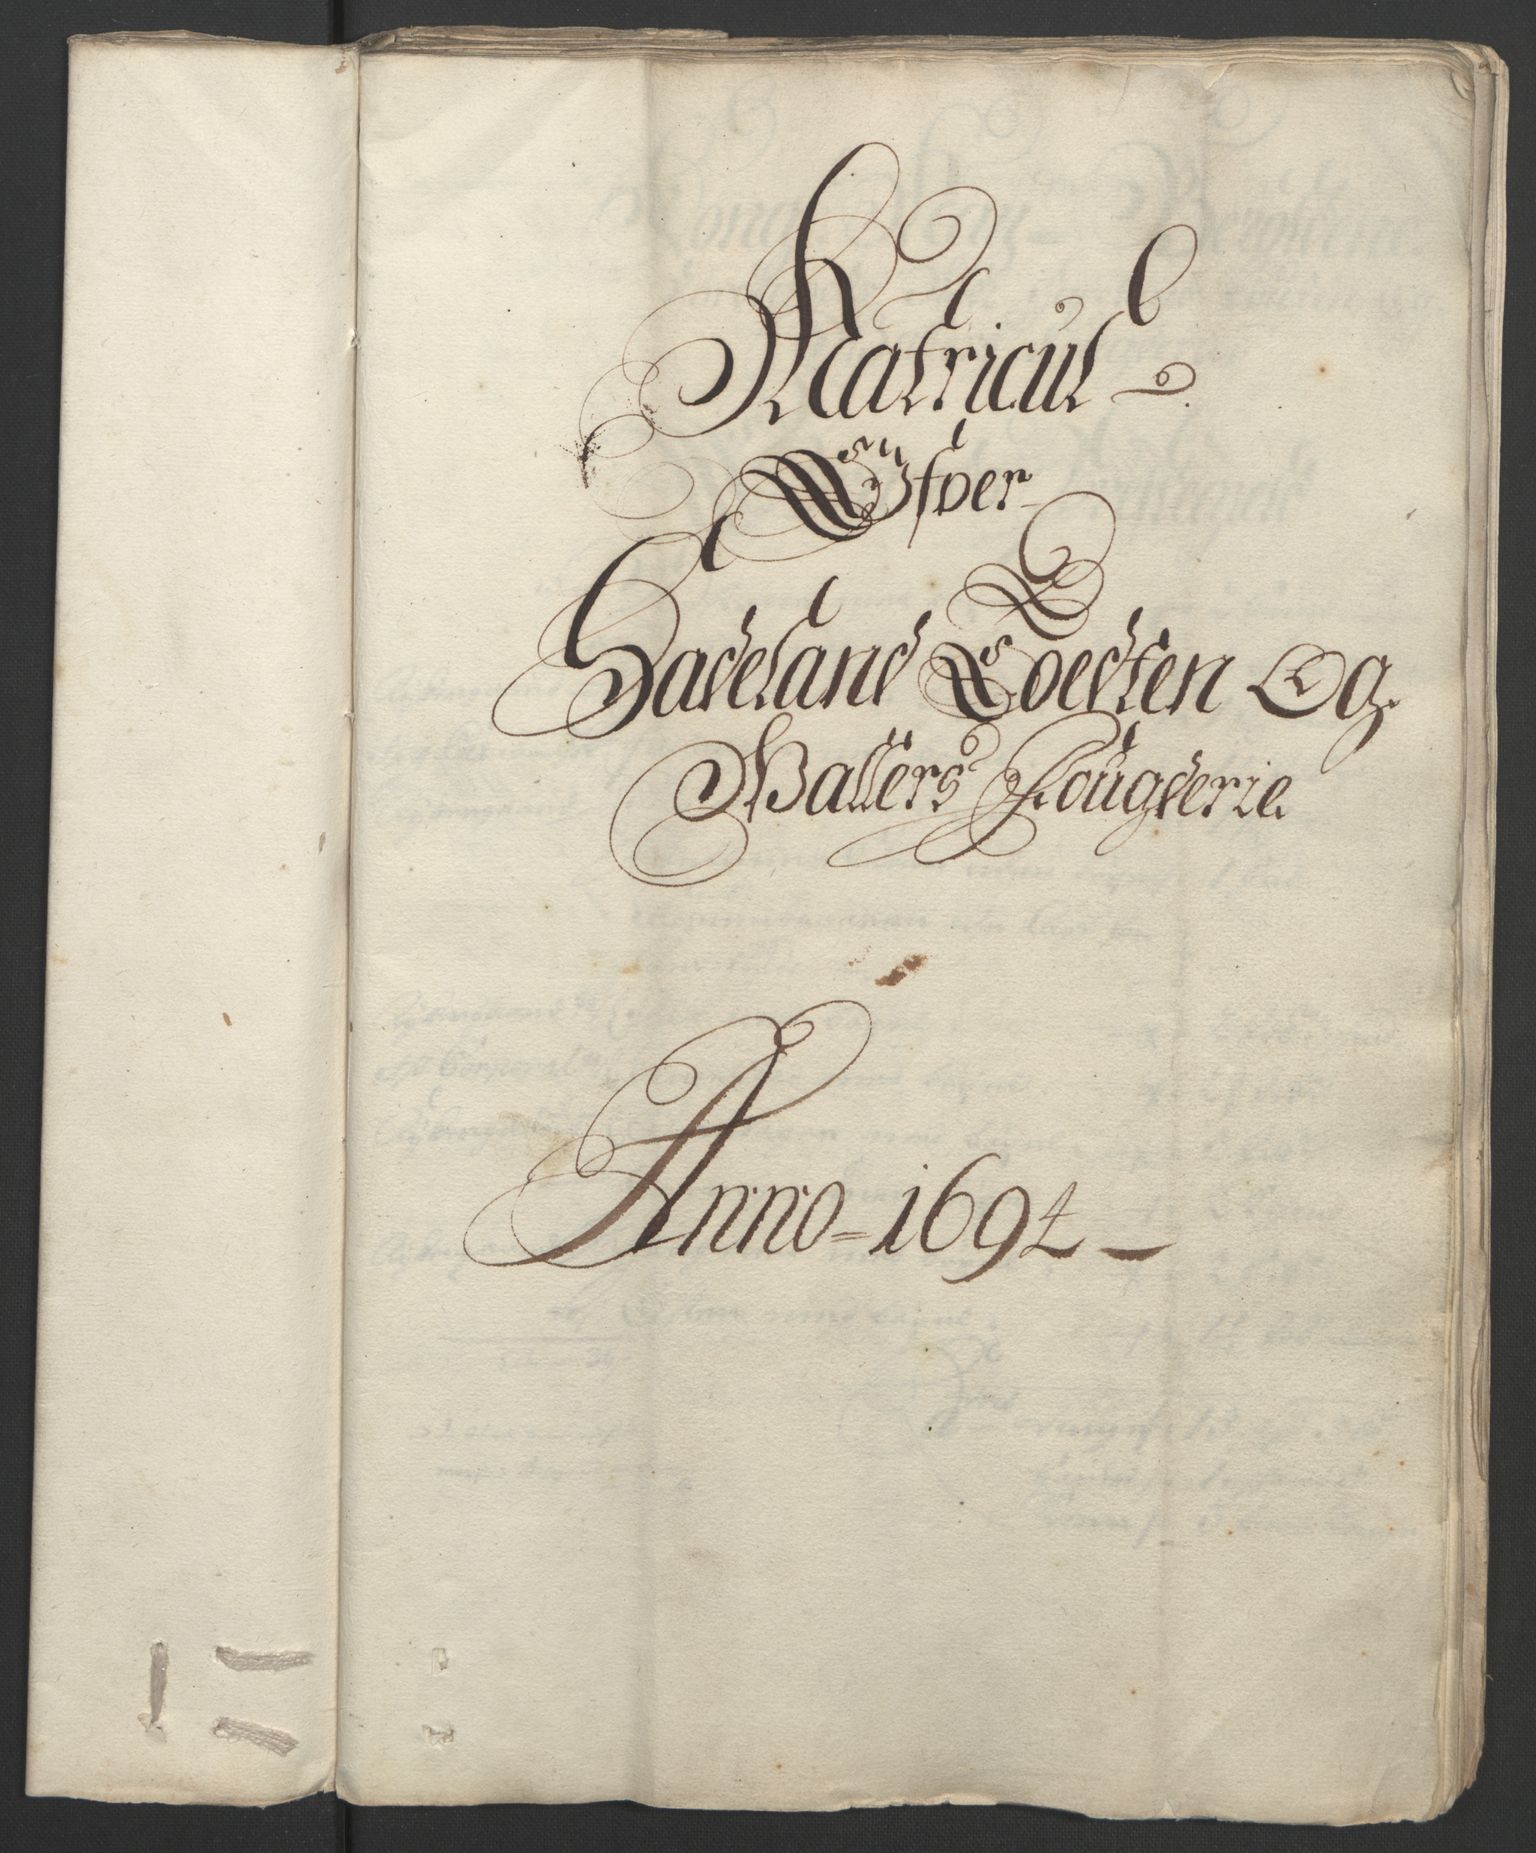 Matricul
Ofver
Hadeland Toedten Og
Wallers Fougderie
Anno 1694